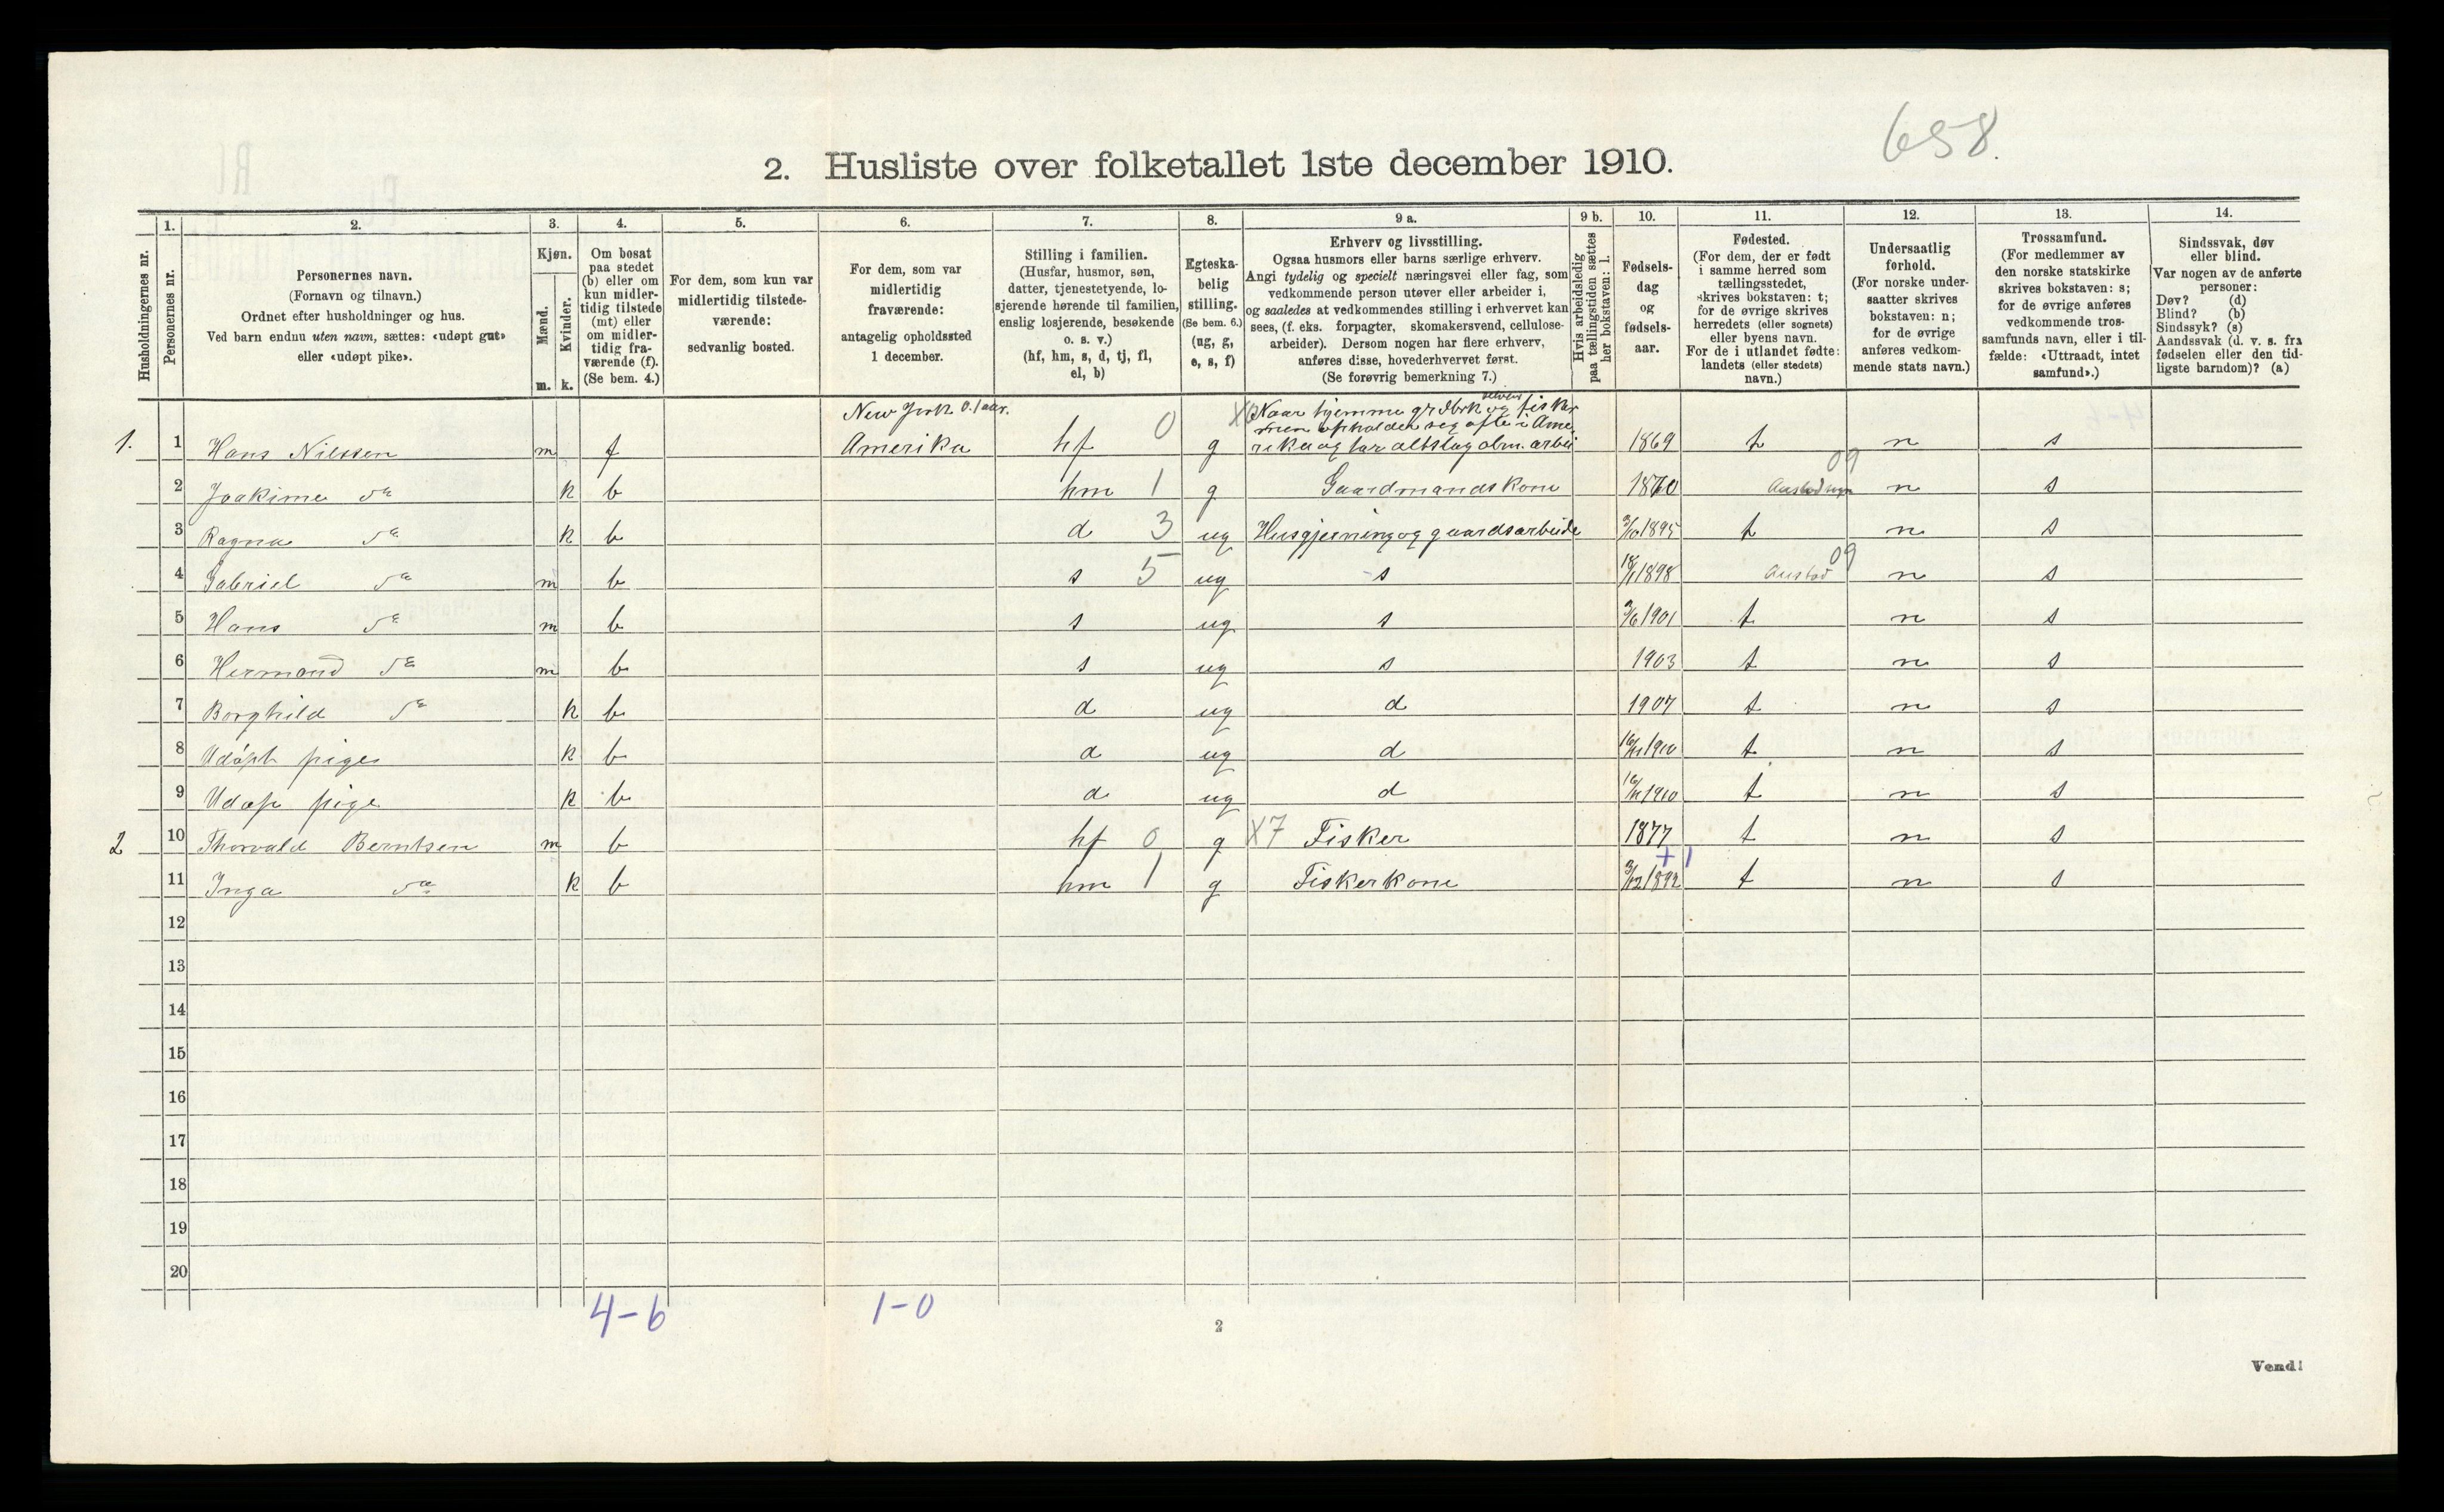 658.
2. Husliste over folketallet 1ste december 1910.
Husholdningernes nr.
1.
Personernes nr.
2.
Personernes navn.
(Fornavn og tilnavn.)
Ordnet efter husholdninger og hus.
Ved barn endnu uten navn, sættes: «udøpt gut»
eller «udøpt pike».
3.
Kjøn.
Mænd.
Kvinder.
m. k.
4.
Om bosat
paa stedet
(b) eller om
kun midler-
tidig tilstede
(mt) eller
om midler-
tidig fra-
værende (f).
(Se bem. 4.)
5.
For dem, som kun var
midlertidig tilstede-
værende:
sedvanlig bosted.
6.
For dem, som var
midlertidig
fraværende:
antagelig opholdssted
1 december.
7.
Stilling i familien.
(Husfar, husmor, søn,
datter, tjenestetyende, lo-
sjerende hørende til familien,
enslig losjerende, besøkende
o. s. v.)
(hf, hm, s, d, tj, fl,
el, b)
8.
Egteska-
belig
stilling.
(Se bem. 6.)
(ug, g,
e, s, f)
9 a.
Erhverv og livsstilling.
Ogsaa husmors eller barns særlige erhverv.
Angi tydelig og specielt næringsvei eller fag, som
vedkommende person utøver eller arbeider i,
og saaledes at vedkommendes stilling i erhvervet kan
sees, (f. eks. forpagter, skomakersvend, cellulose-
arbeider). Dersom nogen har flere erhverv,
anføres disse, hovederhvervet først.
(Se forøvrig bemerkning 7.)
9 b.
Hvis arbeidsledig
paa tællingstiden sættes
her bokstaven: l.
10.
Fødsels-
dag
og
fødsels-
aar.
11.
Fødested.
(For dem, der er født
i samme herred som
tællingsstedet,
skrives bokstaven: t;
for de øvrige skrives
herredets (eller sognets)
eller byens navn.
For de i utlandet fødte:
landets (eller stedets)
navn.)
12.
Undersaatlig
forhold.
(For norske under-
saatter skrives
bokstaven: n;
for de øvrige
anføres vedkom-
mende stats navn.)
13.
Trossamfund.
(For medlemmer av
den norske statskirke
skrives bokstaven: s;
for de øvrige anføres
vedkommende tros-
samfunds navn, eller i til-
fælde: «Uttraadt, intet
samfund».)
14.
Sindssvak, døv
eller blind.
Var nogen av de anførte
personer:
Døv? (d)
Blind? (b)
Sindssyk? (s)
Aandssvak (d. v. s. fra
fødselen eller den tid-
ligste barndom)? (a)
New York 0.1 aar.
Naar hjemme grdbrk og fisker
men opholder seg ofte i Ame-
1. 1 Hans Nilssen m f Amerika hf 0 g rika og tar altslag alm. arbei 1869 t n s
2 Joakime do k b hm 1 g Gaardmandskone 1870 n s
3 Ragna do k b d 3 ug Husgjerning og gaardsarbeide 3/10 1895 t n s
4 Gabriel do m b s 5 ug s 1898 Austad 09 n s
5 Hans do m b s ug s 3/6 1901 t n s
6 Hermand do m b s ug s 1903 t n s
7 Borghild do k b d ug d 1907 t n s
8 Udøpt pige k b d ug d 16/11 1910 t n s
9 Udøp pige k b d ug d 16/11 1910 t n s
2 10 Thorvald Berntsen m b hf 0 g X7 Fisker 1877 t n s
11 Inga do k b hm 1 g Fiskerkone 3/12 1892 +1 t n s
12
13
14
15
16
17
18
19
20
4-6 1-0
2
Vend!